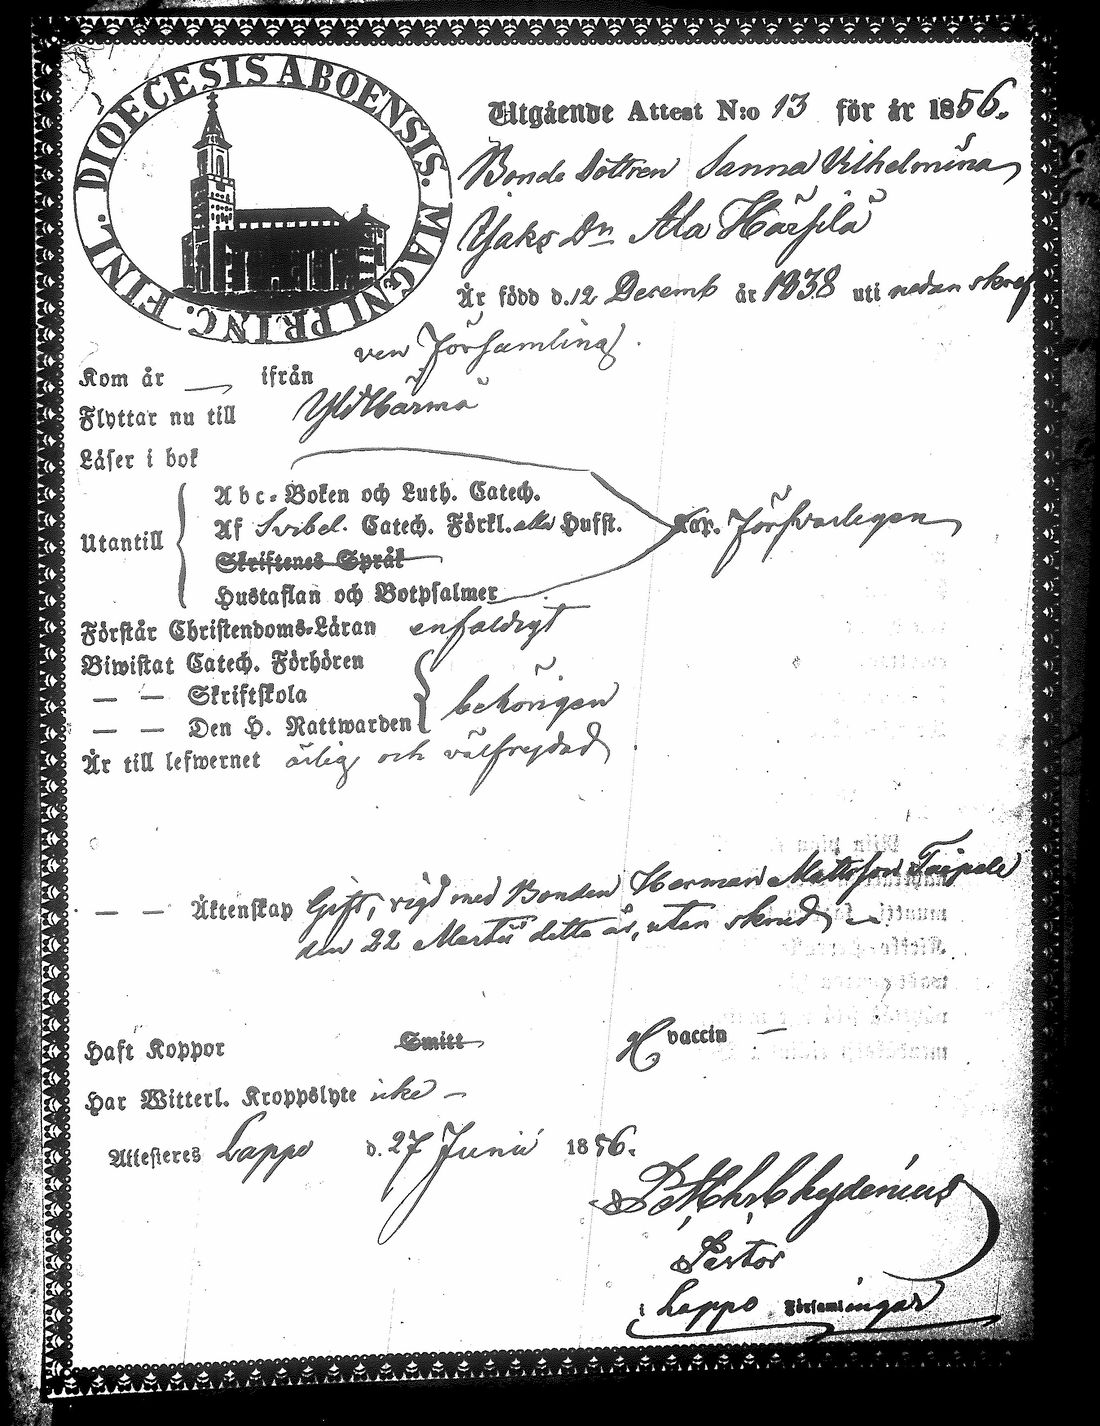 DIOECESIS ABOENSIS. MAGNI PRINC. FINL.
Utgående Attest N:o 13 för år 1856.
Bonde Dottren Sanna Vilhelmina
Jaks Dn Ala Härsilä
Är född d. 12 Decemb år 1838 uti nedan skref
ven Församling.
Kom år — ifrån
Flyttar nu till YliHärmä
Läser i bok
Utantill
Abc-Boken och Luth. Catech.
Af Svibel. Catech. Förkl. alla Hufst.
Skriftenes Språk
Hustaflan och Botpsalmer
Förfvarligen
Förstår Christendoms-Läran enfaldigt
Biwistat Catech. Förhören
— — Skriftskola
— — Den H. Nattwarden
behörigen
Är till lefwernet ärlig och välfrejdad
— — Äktenskap Gift, vigd med Bonden Herman Mattsson Taipale
den 22 Martii detta år, utan skrud —
Haft Koppor Smitt H. vaccin —
Har Witterl. Kroppslyte icke —
Attesteres Lappo d. 27 Junii 1856.
Chydenius
Pastor
i Lappo Församlingar